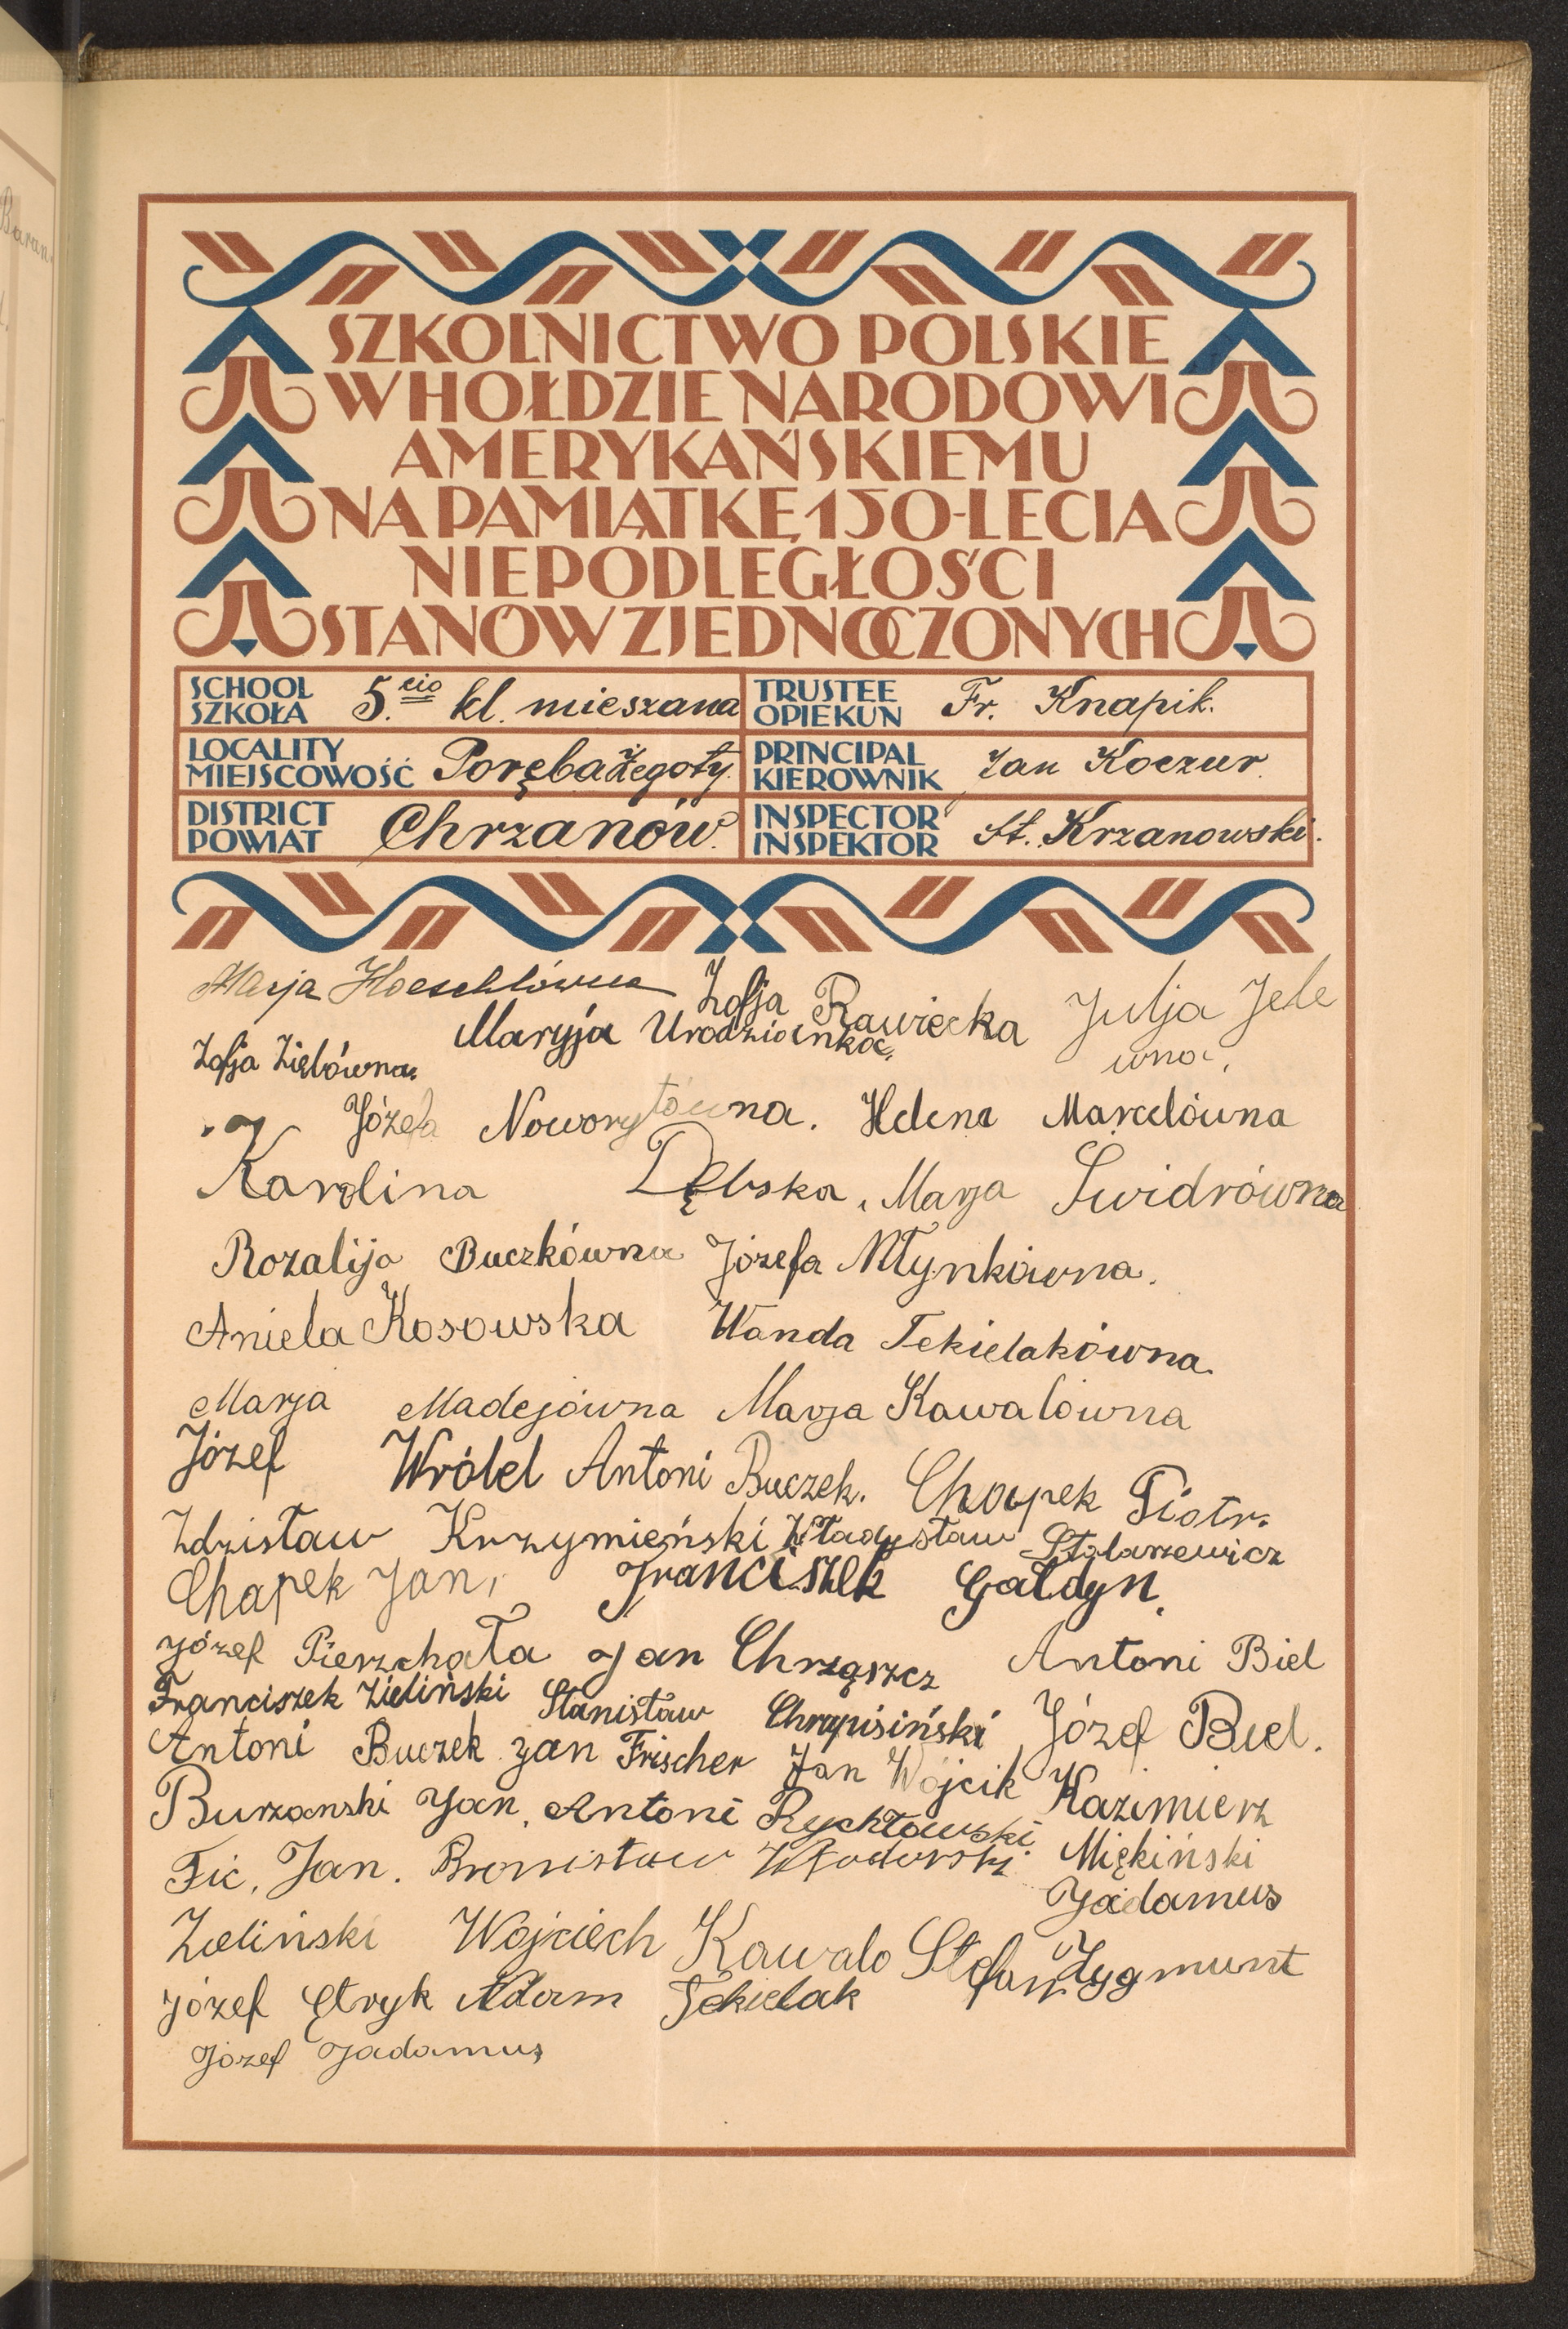 SZKOLNICTWO POLSKIE
W HOŁDZIE NARODOWI
AMERYKAŃSKIEMU
NA PAMIĄTKĘ 150-LECIA
NIEPODLEGŁOŚCI
STANÓW ZJEDNOCZONYCH
SCHOOL
SZKOŁA
5.cio kl. mieszana
TRUSTEE
OPIEKUN
Fr. Knapik.
LOCALITY
MIEJSCOWOŚĆ
Poręba Żegoty.
PRINCIPAL
KIEROWNIK
Jan Koczur.
DISTRICT
POWIAT
Chrzanów.
INSPECTOR
INSPEKTOR
St. Krzanowski.
Marja Zofja Rawiecka Julja Jele
wna.
Zofja Zielówna. Maryja Urodzianka.
Józefa Noworytówna. Helena Marcelówna
Karolina Dębska, Marja Świdrówna
Rozalija Buczkówna Józefa Młynkówna.
Aniela Kosowska Wanda Tekielakówna.
Marja Madejówna Marja Kawalówna
Józef Wróbel Antoni Buczek. Chapek Piotr.
Zdzisław Krzymieński Władysław Stolarzewicz
Chapek Jan, Franciszek Gałdyn.
Józef Pierzchała Jan Chrząszcz Antoni Biel
Franciszek Zieliński Stanisław Józef Biel.
Antoni Buczek Jan Frischer Jan Wójcik Kazimierz
Miękiński
Burzanski Jan. Antoni Rychłowski
Fic, Jan. Bronisław Jadamus
Zygmunt
Zieliński Wojciech Kawalo Stefan.
Józef Ętryk Adam Tekielak
Józef Jadamus
Baran